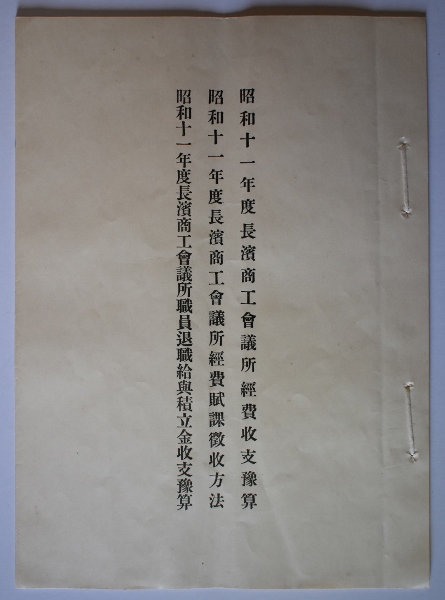 昭和十一年度長濱商工會議所經費收支豫算
昭和十一年度長濱商工會議所經費賦課徵收方法
昭和十一年度長濱商工會議所職員退職給與積立金收支豫算